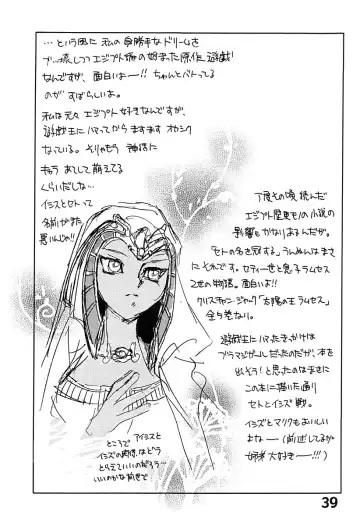 …という風に私の自勝手なドリームを
ブッ壊しつつエジプト編の始まった原作・遊戯王
なんですが、面白いよー!! ちゃんとバトってる
のがすばらしいよ。
私は元々エジプト好きなんですが、
遊戯王にハマってからますますオカシク
なっている。そりゃもう神話に
キャラあてして萌えてる
くらいだしな…
イシスとセトって
名前がまた
悪いんじゃ!!
丁度その頃読んだ
エジプト関連モノの小説の
影響もかなりあるんだが。
「セトの名を冠する」うんぬんはまさ
にそれです。セティ一世と息子ラムセス
2世の物語。面白いよ!!
クリスチャン・ジャック「太陽の王ラムセス」
全5巻なり。
遊戯王にハマったきっかけは
ブラマジガールだったのだが、本を
出そう!と思ったのはまさに
この本に描いた通り
セトとイシズ戦。
イシズとマリクもおいしい
よなー(前述してるが
姉弟大好きー!!!)
ところで アイシスと
イシズの関係はどう
とらえていいのだろう…
いいのかな前世で
39